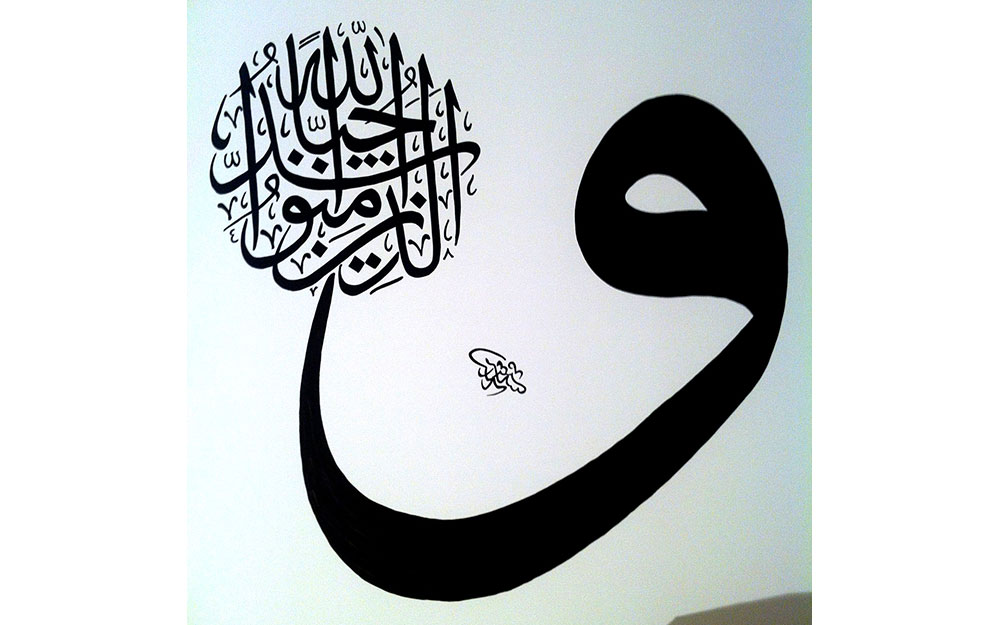 وَالَّذِينَ اٰمَنُوا اَشَدُّ حُبًّا لِلّٰهِ